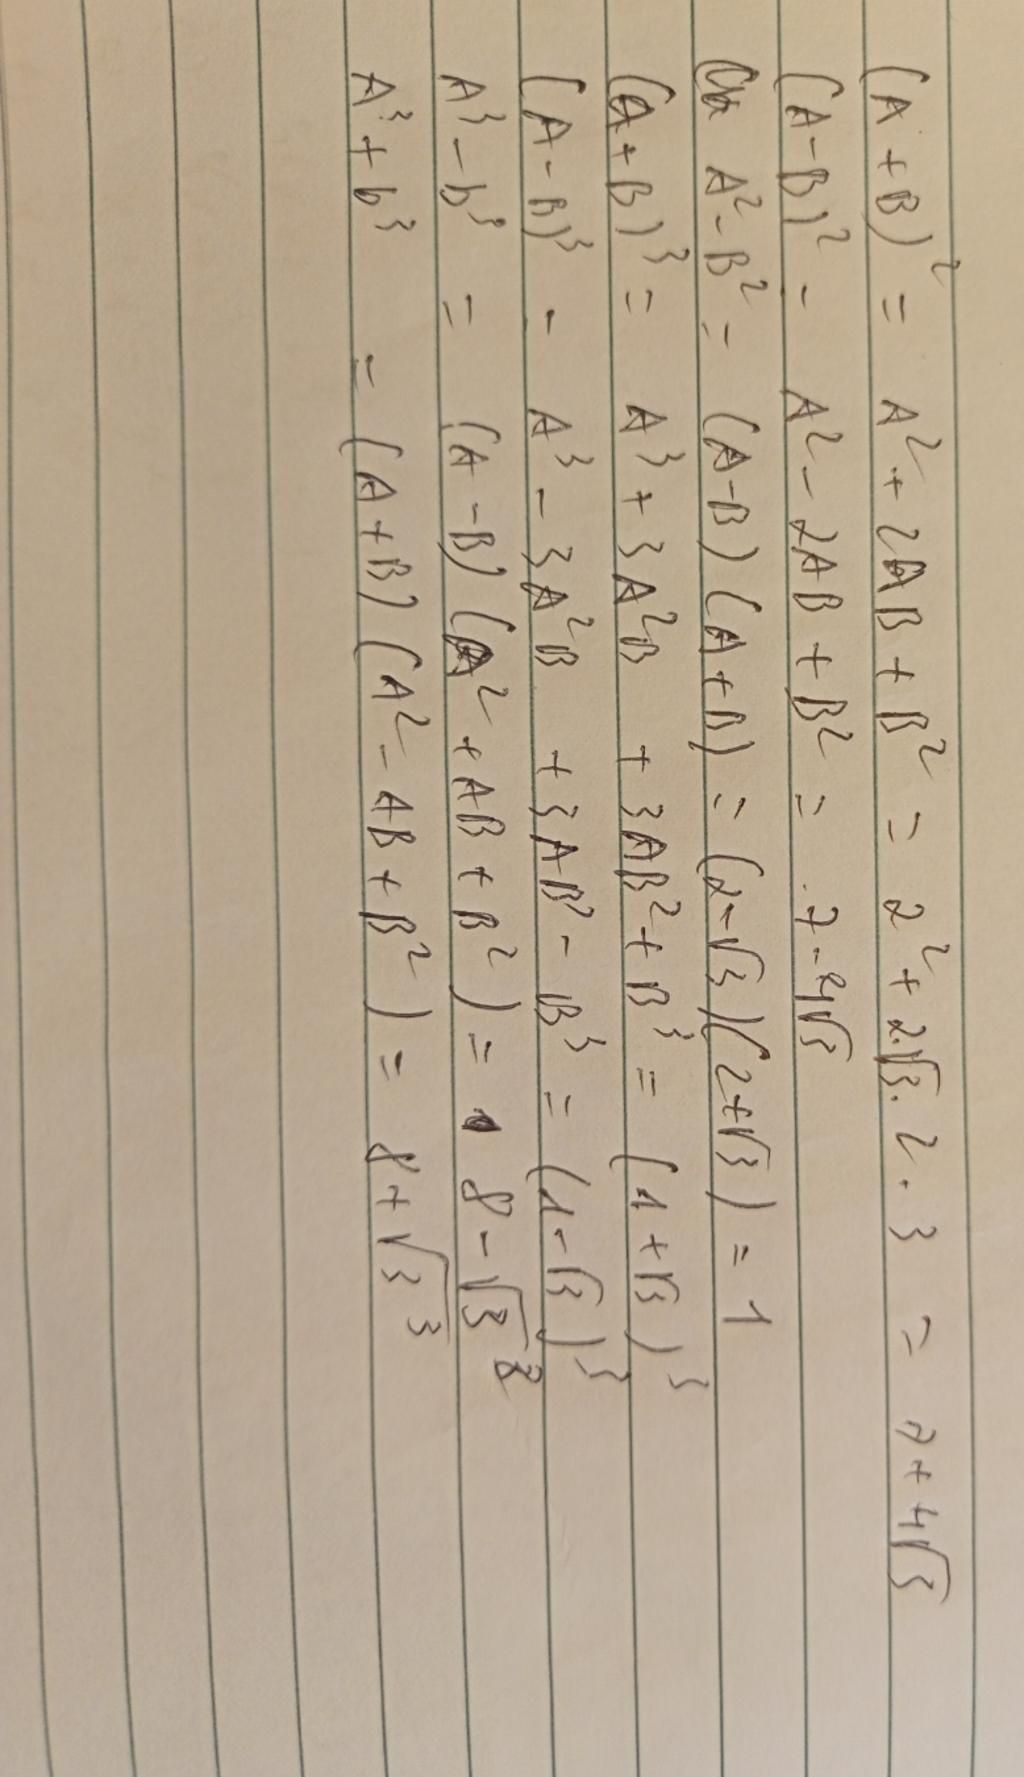 (A+B)² = A² + 2AB + B² = 2² + 2√3·2·3 = 7+4√3
(A-B)² - A² - 2AB + B² = 7-4√3
A² - B² = (A-B)(A+B) = (2-√3)(2+√3) = 1
(A+B)³ = A³ + 3A²B + 3AB² + B³ = (1+√3)³
(A-B)³ - A³ - 3A²B + 3AB² - B³ = (1-√3)³
A³ - b³ = (A-B)(A² + AB + B²) = 8-√3³
A³ + b³ = (A+B)(A² - AB + B²) = 8+√3³